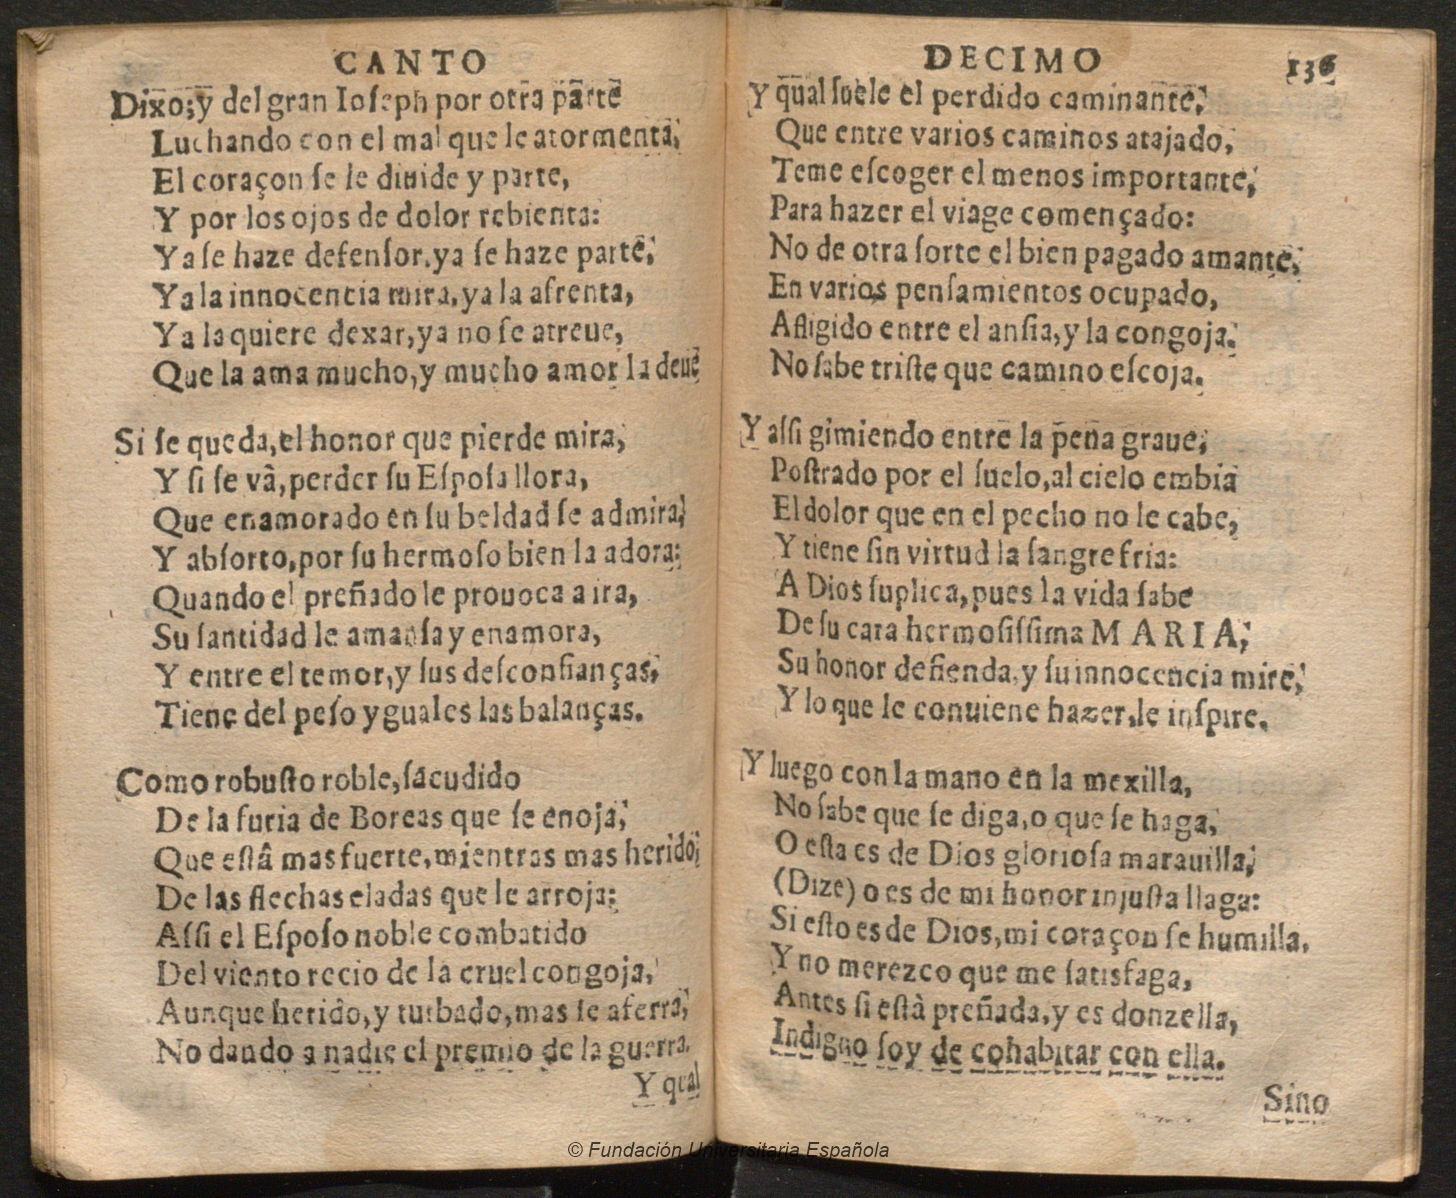 CANTO
Dixo; y del gran Ioſeph por otra parte
Luchando con el mal que le atormenta,
El coraçon ſe le diuide y parte,
Y por los ojos de dolor rebienta:
Ya ſe haze defenſor, ya ſe haze parte,
Ya la innocencia mira, ya la afrenta,
Ya la quiere dexar, ya no ſe atreue,
Que la ama mucho, y mucho amor la deue
Si ſe queda, el honor que pierde mira,
Y ſi ſe và, perder ſu Eſpoſa llora,
Que enamorado en ſu beldad ſe admira,
Y abſorto, por ſu hermoſo bien la adora:
Quando el preñado le prouoca a ira,
Su ſantidad le amanſa y enamora,
Y entre el temor, y ſus deſconfianças,
Tiene del peſo yguales las balanças.
Como robuſto roble, ſacudido
De la furia de Boreas que ſe enoja,
Que eſtâ mas fuerte, mientras mas herido,
De las flechas eladas que le arroja:
Aſſi el Eſpoſo noble combatido
Del viento recio de la cruel congoja,
Aunque herido, y turbado, mas ſe aferra,
No dando a nadie el premio de la guerra.
Y qual
DECIMO 136
Y qual ſuele el perdido caminante,
Que entre varios caminos atajado,
Teme eſcoger el menos importante,
Para hazer el viage començado:
No de otra ſorte el bien pagado amante,
En varios penſamientos ocupado,
Afligido entre el anſia, y la congoja.
No ſabe triſte que camino eſcoja.
Y aſſi gimiendo entre la pena graue,
Poſtrado por el ſuelo, al cielo embia
El dolor que en el pecho no le cabe,
Y tiene ſin virtud la ſangre fria:
A Dios ſuplica, pues la vida ſabe
De ſu cara hermoſiſſima MARIA,
Su honor defienda, y ſu innocencia mire,
Y lo que le conuiene hazer, le inſpire.
Y luego con la mano en la mexilla,
No ſabe que ſe diga, o que ſe haga,
O eſta es de Dios glorioſa marauilla,
(Dize) o es de mi honor injuſta llaga:
Si eſto es de Dios, mi coraçon ſe humilla,
Y no merezco que me ſatisfaga,
Antes ſi eſtà preñada, y es donzella,
Indigno ſoy de cohabitar con ella.
Sino
© Fundación Universitaria Española